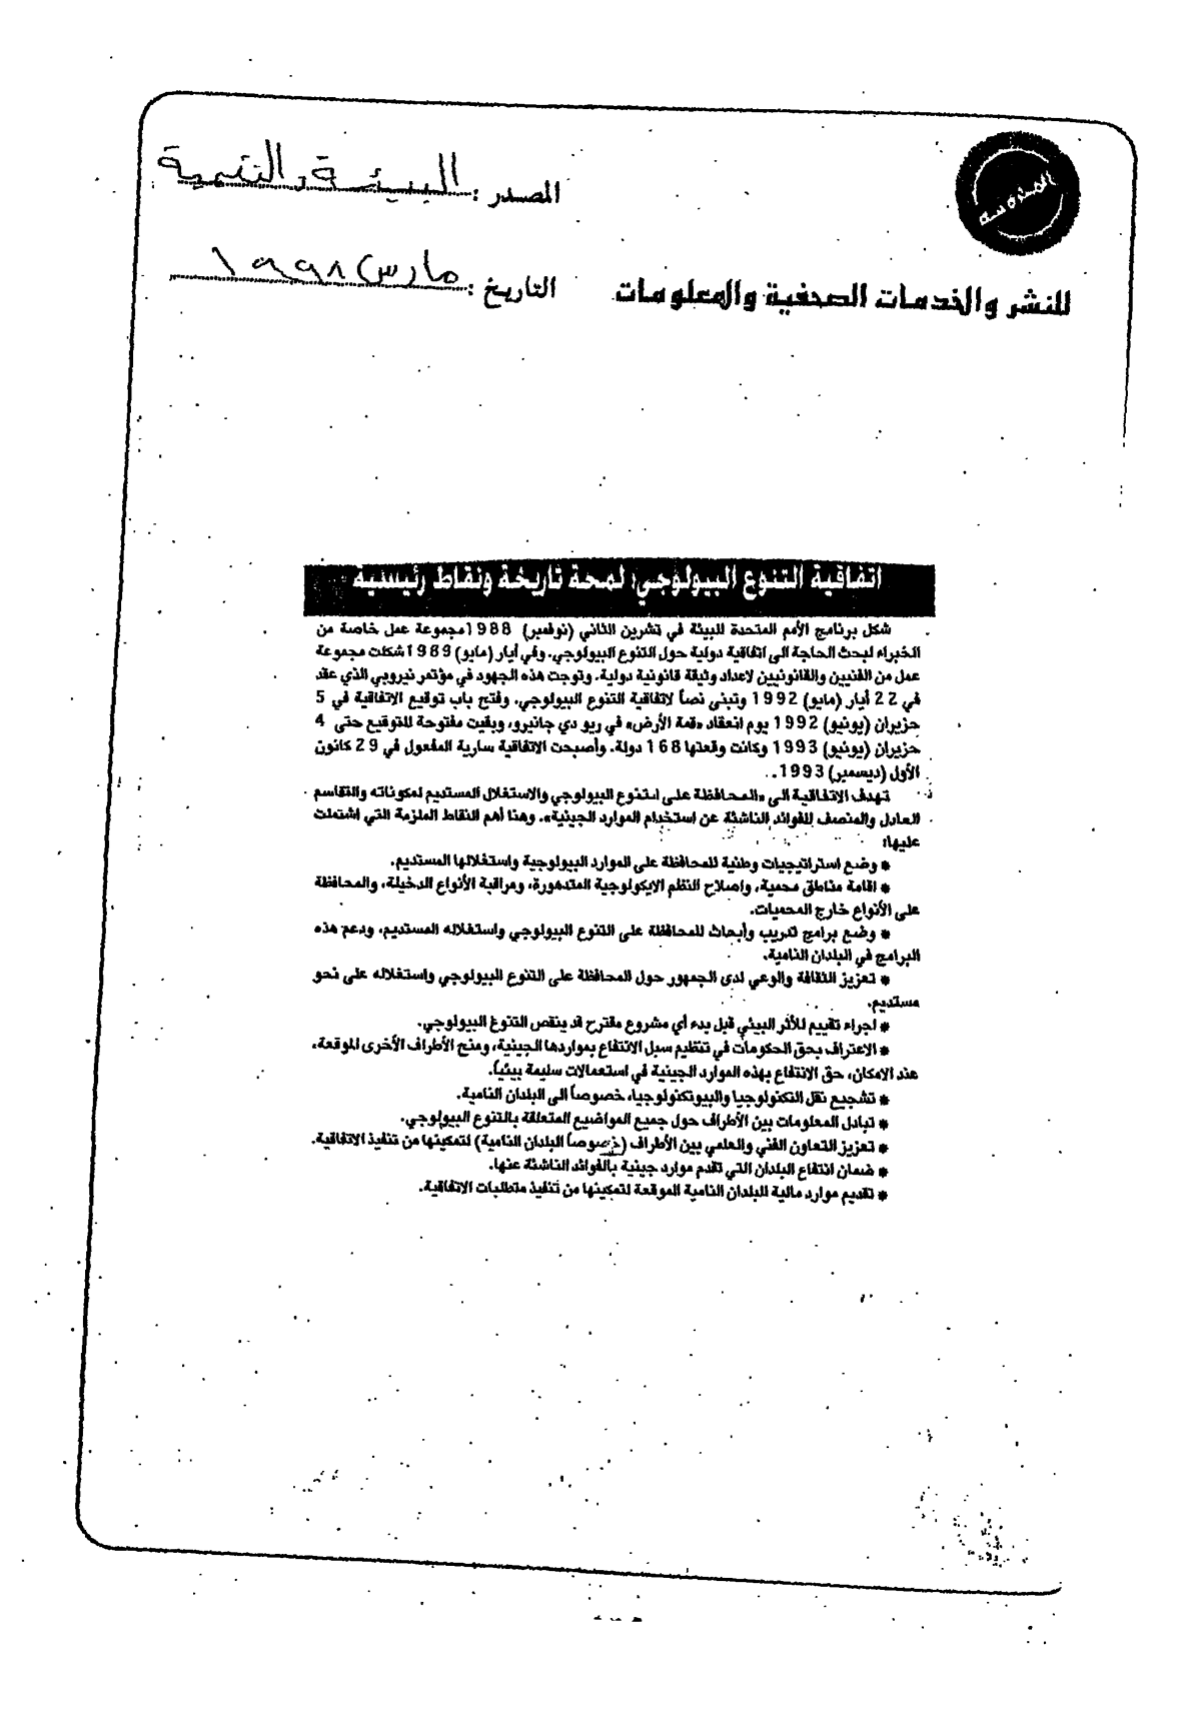 المحروسة
المصدر : البيئة والتنمية
للنشر والخدمات الصحفية والمعلومات
التاريخ : مارس ١٩٩٨
اتفاقية التنوع البيولوجي: لمحة تاريخة ونقاط رئيسية
شكل برنامج الأمم المتحدة للبيئة في تشرين الثاني (نوفمبر) 1988 مجموعة عمل خاصة من
الخبراء لبحث الحاجة الى اتفاقية دولية حول التنوع البيولوجي. وفي أيار (مايو) 1989 شكلت مجموعة
عمل من الفنيين والقانونيين لاعداد وثيقة قانونية دولية. وتوجت هذه الجهود في مؤتمر نيروبي الذي عقد
في 22 أيار (مايو) 1992 وتبنى نصاً لاتفاقية التنوع البيولوجي. وفتح باب توقيع الاتفاقية في 5
حزيران (يونيو) 1992 يوم انعقاد «قمة الأرض» في ريو دي جانيرو، وبقيت مفتوحة للتوقيع حتى 4
حزيران (يونيو) 1993 وكانت وقعتها 168 دولة. وأصبحت الاتفاقية سارية المفعول في 29 كانون
الأول (ديسمبر) 1993.
تهدف الاتفاقية الى «المحافظة على التنوع البيولوجي والاستغلال المستديم لمكوناته والتقاسم
العادل والمنصف للفوائد الناشئة عن استخدام الموارد الجينية». وهنا أهم النقاط الملزمة التي اشتملت
عليها:
* وضع استراتيجيات وطنية للمحافظة على الموارد البيولوجية واستغلالها المستديم.
* اقامة مناطق محمية، واصلاح النظم الايكولوجية المتدهورة، ومراقبة الأنواع الدخيلة، والمحافظة
على الأنواع خارج المحميات.
* وضع برامج تدريب وأبحاث للمحافظة على التنوع البيولوجي واستغلاله المستديم، ودعم هذه
البرامج في البلدان النامية.
* تعزيز الثقافة والوعي لدى الجمهور حول المحافظة على التنوع البيولوجي واستغلاله على نحو
مستديم.
* اجراء تقييم للأثر البيئي قبل بدء أي مشروع مقترح قد ينقص التنوع البيولوجي.
* الاعتراف بحق الحكومات في تنظيم سبل الانتفاع بمواردها الجينية، ومنح الأطراف الأخرى الموقعة،
عند الامكان، حق الانتفاع بهذه الموارد الجينية في استعمالات سليمة بيئياً.
* تشجيع نقل التكنولوجيا والبيوتكنولوجيا، خصوصاً الى البلدان النامية.
* تبادل المعلومات بين الأطراف حول جميع المواضيع المتعلقة بالتنوع البيولوجي.
* تعزيز التعاون الفني والعلمي بين الأطراف (خصوصاً البلدان النامية) لتمكينها من تنفيذ الاتفاقية.
* ضمان انتفاع البلدان التي تقدم موارد جينية بالفوائد الناشئة عنها.
* تقديم موارد مالية للبلدان النامية الموقعة لتمكينها من تنفيذ متطلبات الاتفاقية.